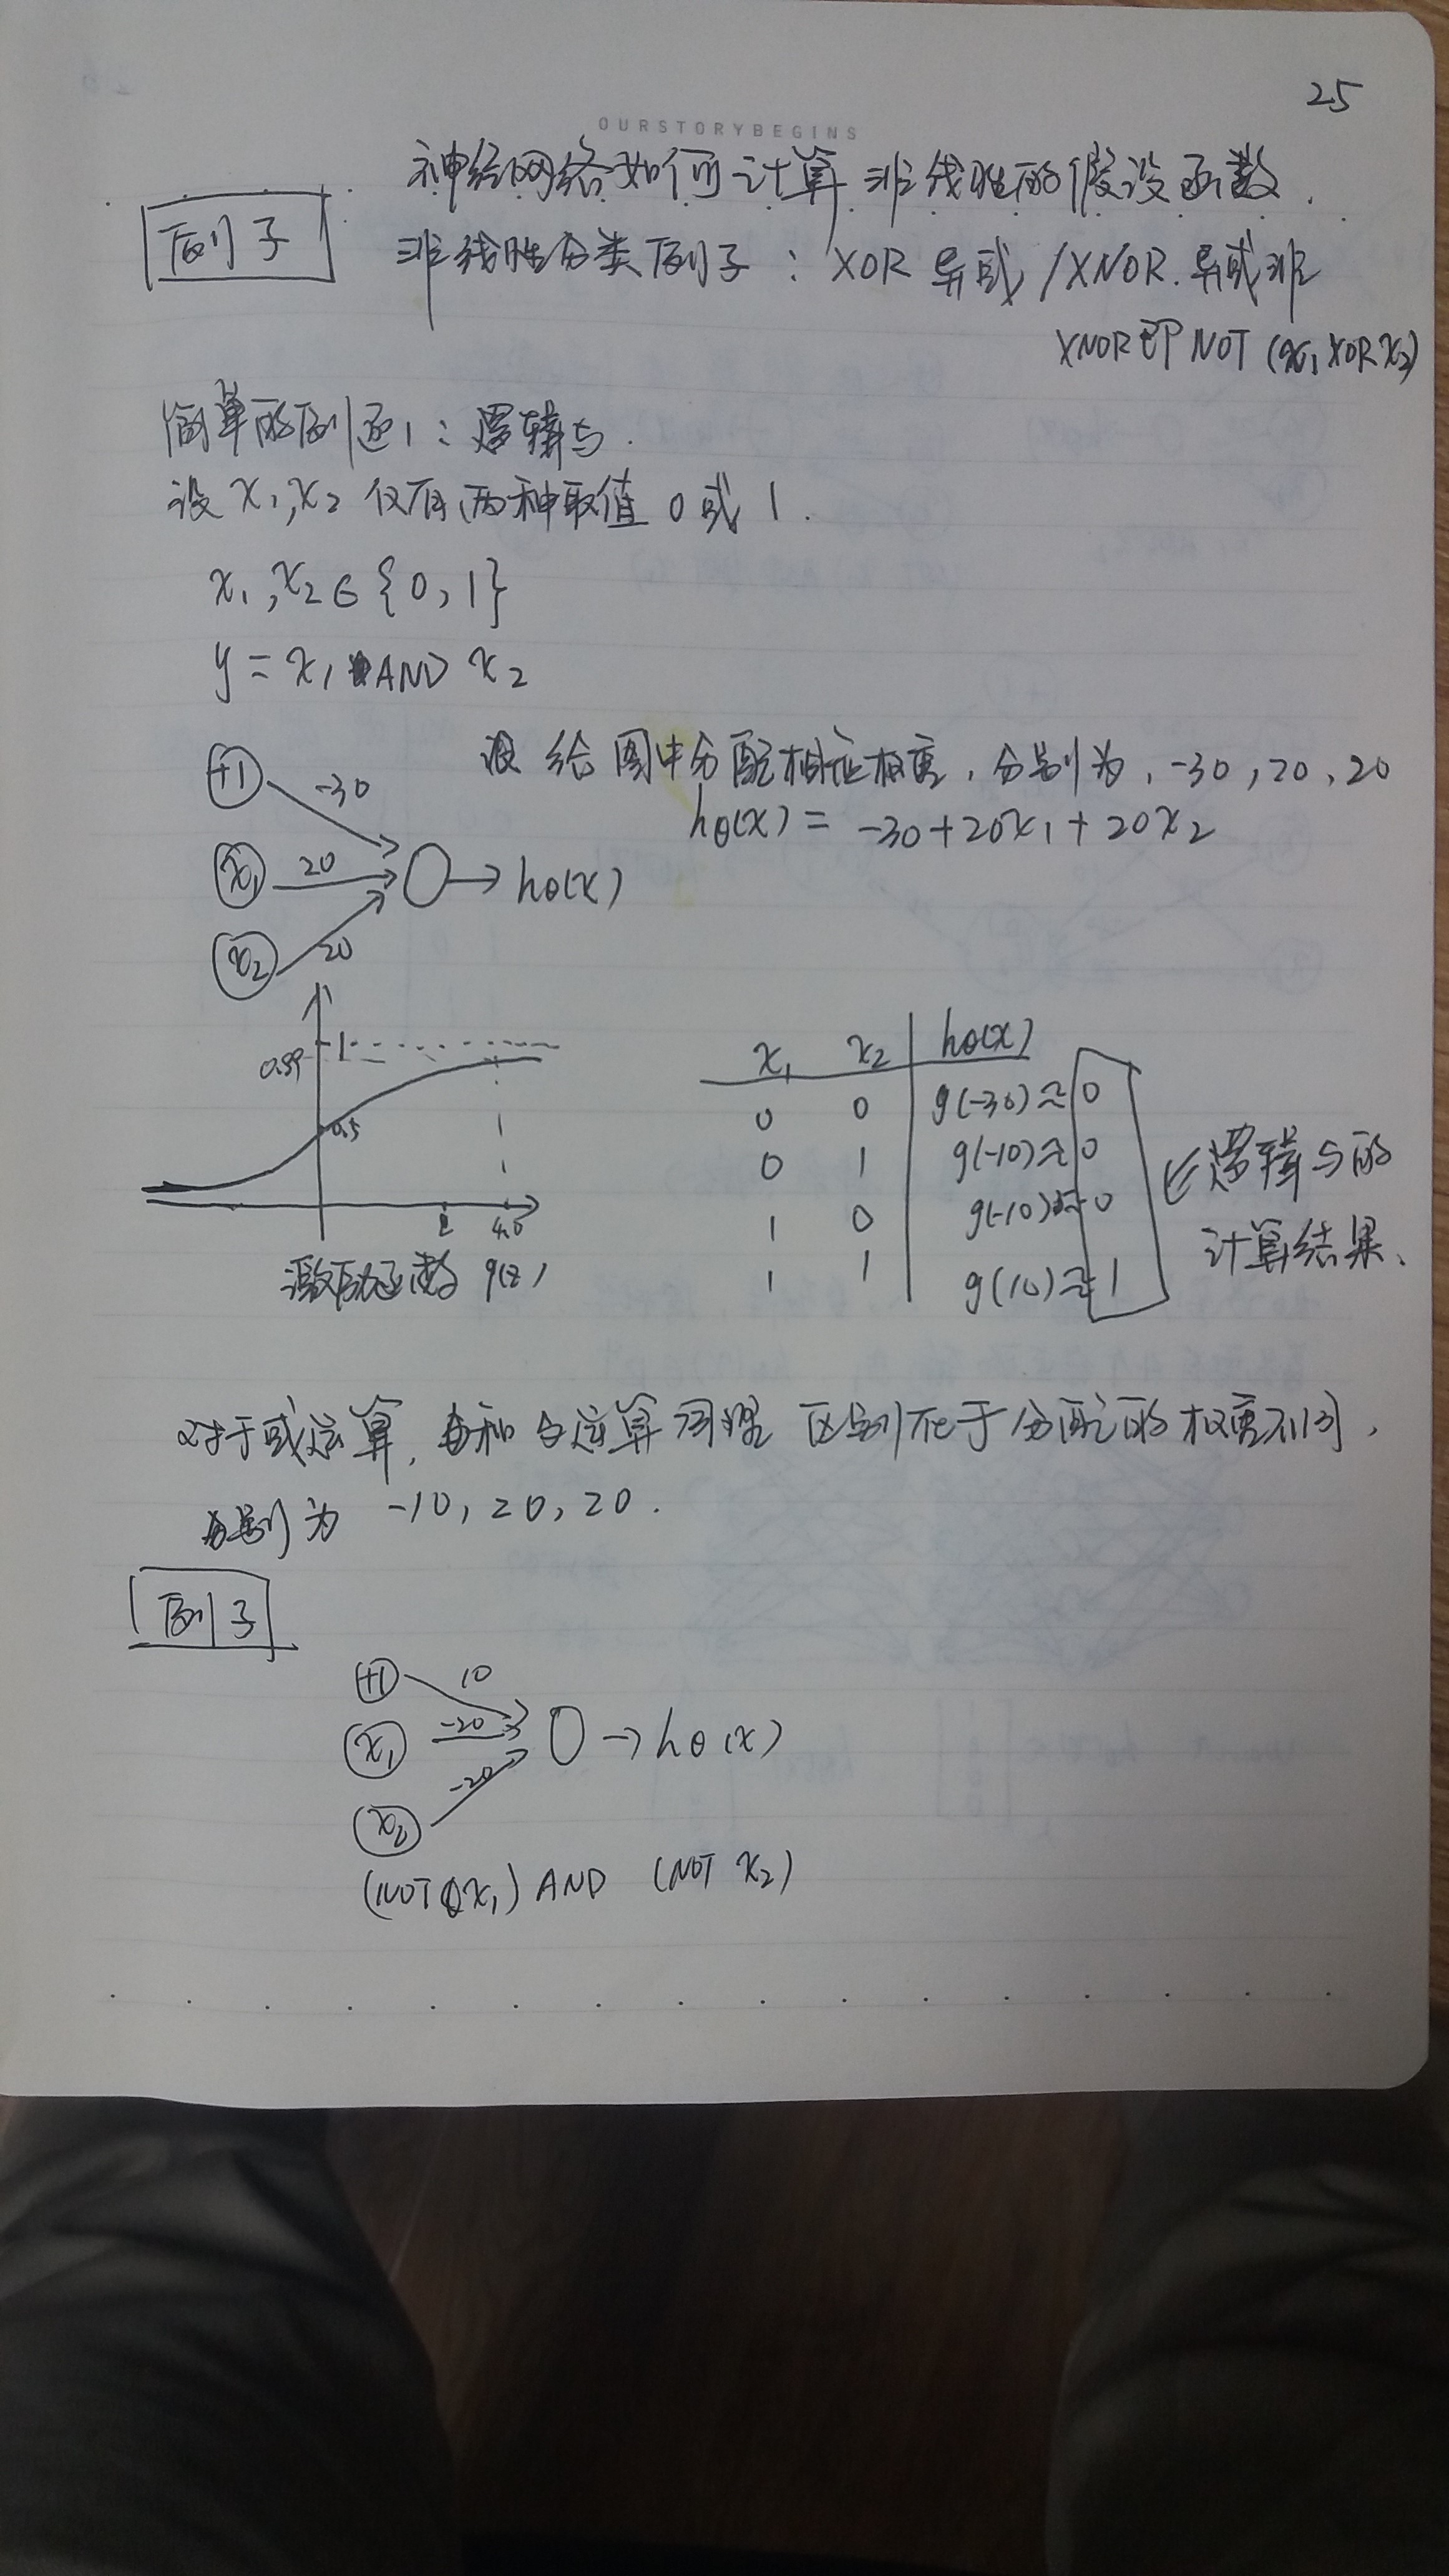 25
OURSTORYBEGINS
神经网络如何计算非线性的假设函数.
例子
非线性分类例子：XOR 异或/XNOR.异或非
XNOR即 NOT (x₁ XOR x₂)
简单的例子1：逻辑与.
设 x₁,x₂ 仅有两种取值 0或 1.
x₁,x₂∈{0,1}
y = x₁ AND x₂
设 给图中分配相应权重，分别为，-30,20,20
hθ(x) = -30+20x₁+20x₂
+1 -30
x₁ 20 → hθ(x)
x₂ 20
1
0.99
0.5
4.0
激励函数 g(z)
x₁ x₂ hθ(x)
0 0 g(-30)≈0
0 1 g(-10)≈0
1 0 g(-10)≈0
1 1 g(10)≈1
⇐逻辑与的
计算结果.
对于或运算，和与运算同理 区别在于分配的权重不同，
分别为 -10,20,20.
例子
+1 10
x₁ -20 → hθ(x)
x₂ -20
(NOT x₁) AND (NOT x₂)